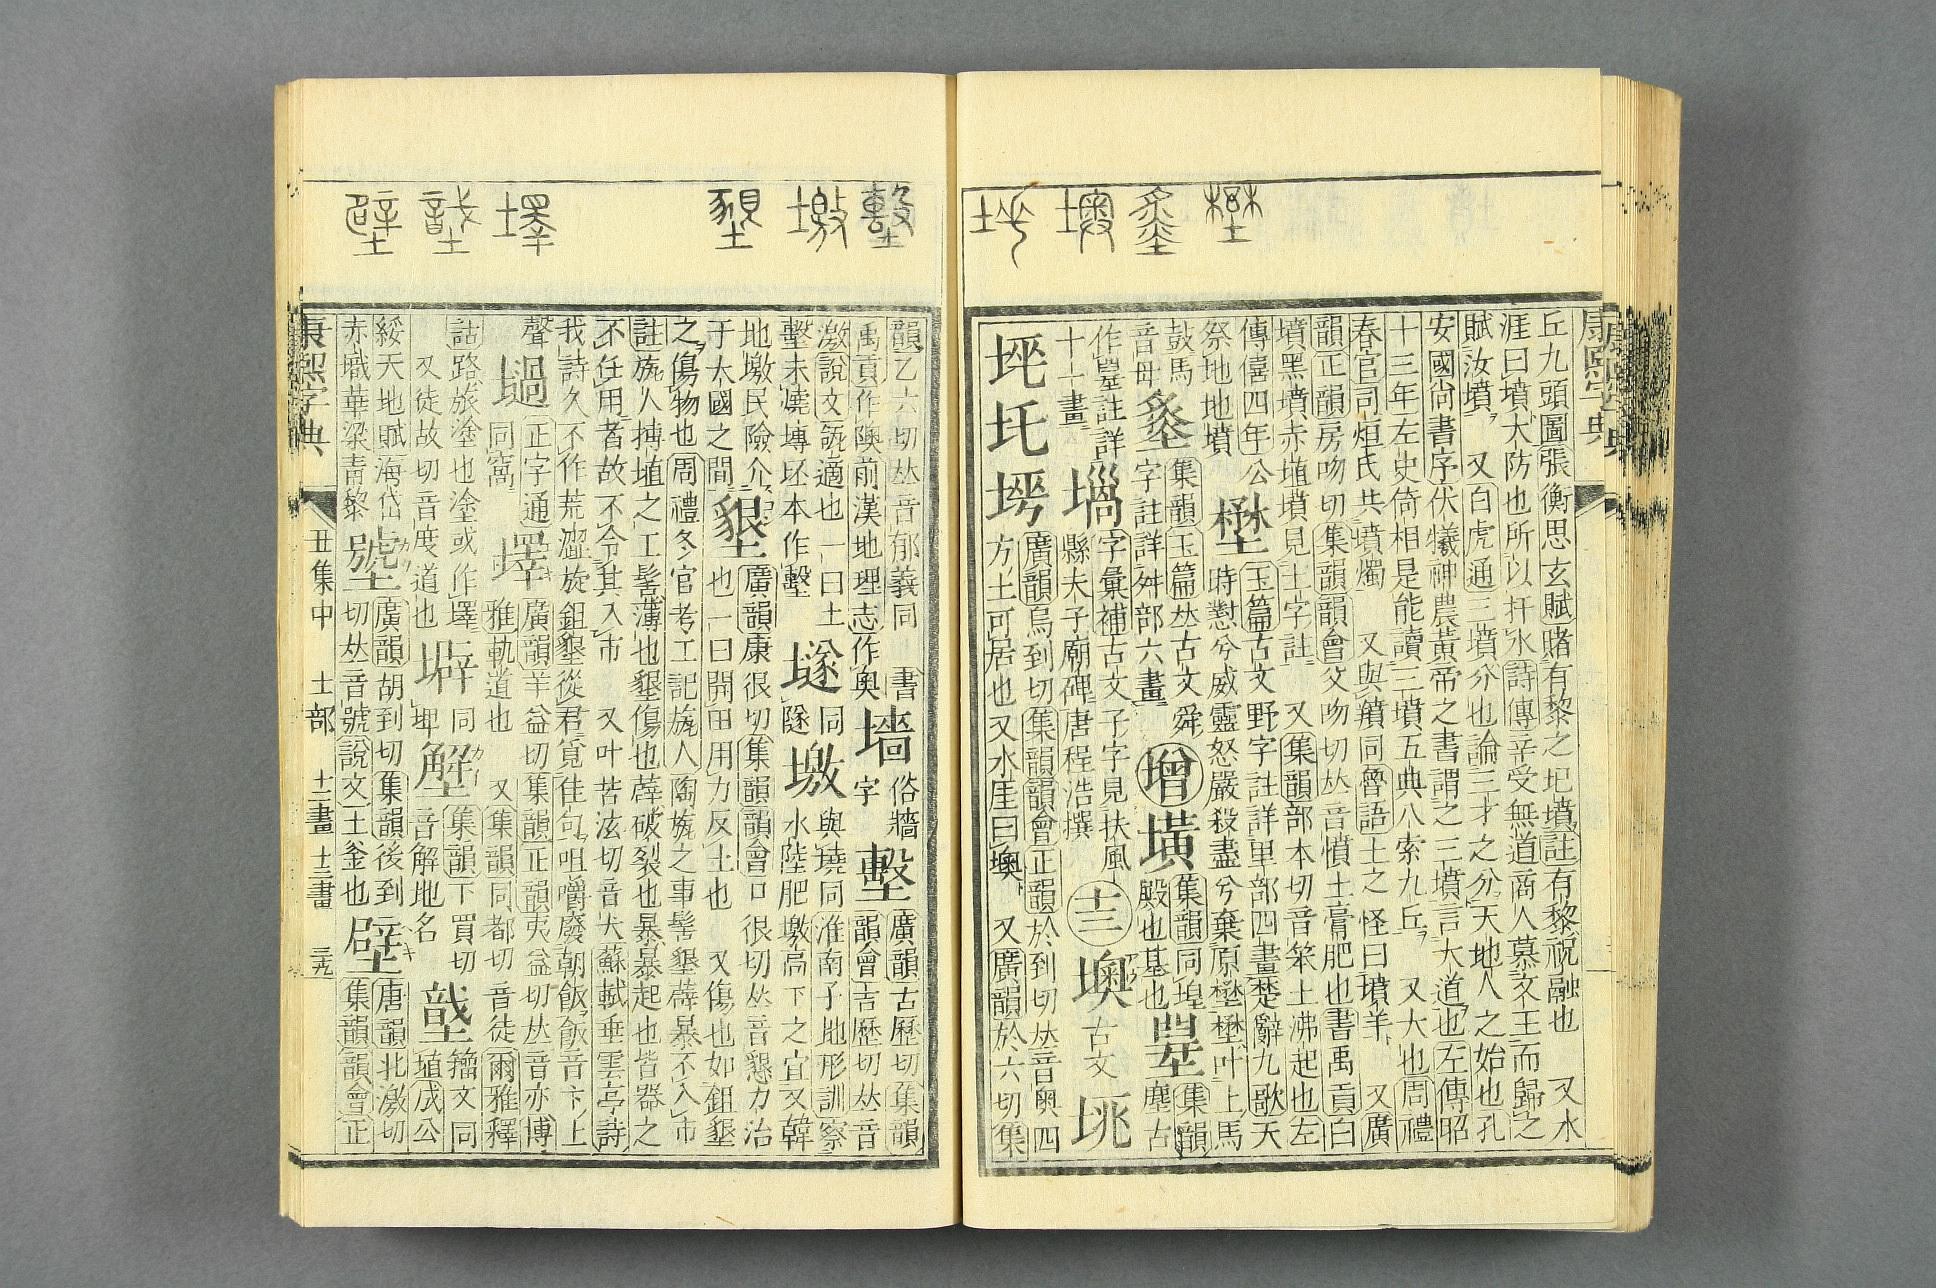 康熙字典
丘九頭圖張衡思玄賦賭有黎之圯墳註有黎祝融也 又水
涯曰墳大防也所以扞水詩傳辛受無道商人慕文王而歸之
賦汝墳 又白虎通三墳分也論三才之分天地人之始也孔
安國尚書序伏犧神農黃帝之書謂之三墳言大道也左傳昭
十三年左史倚相是能讀三墳五典八索九丘 又大也周禮
春官司烜氏共墳燭 又與羵同魯語土之怪曰墳羊 又廣
韻正韻房吻切集韻韻會父吻切𠀤音憤土膏肥也書禹貢白
墳黑墳赤埴墳見土字註 又集韻部本切音笨土沸起也左
傳僖四年公祭地地墳
壄 玉篇古文野字註詳里部四畫楚辭九歌天時懟兮威靈怒嚴殺盡兮棄原壄壄叶上
馬鼓馬音母
玉篇𠀤古文舜字註詳舛部六畫
增
墴 集韻同堭殿也基也
集韻塵古作註詳十一畫
字彙補古文子字見扶風縣夫子廟碑唐程浩撰
十三
墺 古文
垗
廣韻烏到切集韻韻會正韻於到切𠀤音奧四方土可居也又水厓曰墺 又廣韻於六切集
墼 墽 墾 墿
韻乙六切𠀤音郁義同 書禹貢作隩前漢地理志作奥
墻 俗牆字
墼 廣韻古歷切集韻韻會吉歷切𠀤音激說文瓴適也一曰土墼未燒塼坯本作墼
㙩 同隧
墽 與墝同淮南子地形訓察水陸肥墽高下之宜又韓地墽民險介于大國之間
墾 廣韻康很切集韻韻會口很切𠀤音懇力治也一曰開田用力反土也 又傷也如鉏墾之傷物也周禮冬官考工記旊人陶旊之事髺墾薜暴不入市
註旊人摶埴之工髺薄也墾傷也薜破裂也暴暴起也皆器之
不任用者故不令其入市 又叶苦泫切音犬蘇軾垂雲亭詩
我詩久不作荒澀旋鉏墾從君覓佳句咀嚼廢朝飯飯音卞上
聲
堝 正字通同窩
墿 廣韻羊益切集韻正韻夷益切𠀤音亦博雅軌道也 又集韻同都切音徒爾雅釋
詁路旅塗也塗或作墿 又徒故切音度道也
集韻下買切音解地名
籀文同埴成公綏天地賦海岱赤墌華梁靑黎
廣韻胡到切集韻後到切𠀤音號說文土釜也
壁 唐韻北激切集韻韻會正
康熙字典 丑集中 土部 十二畫 十三畫 三九